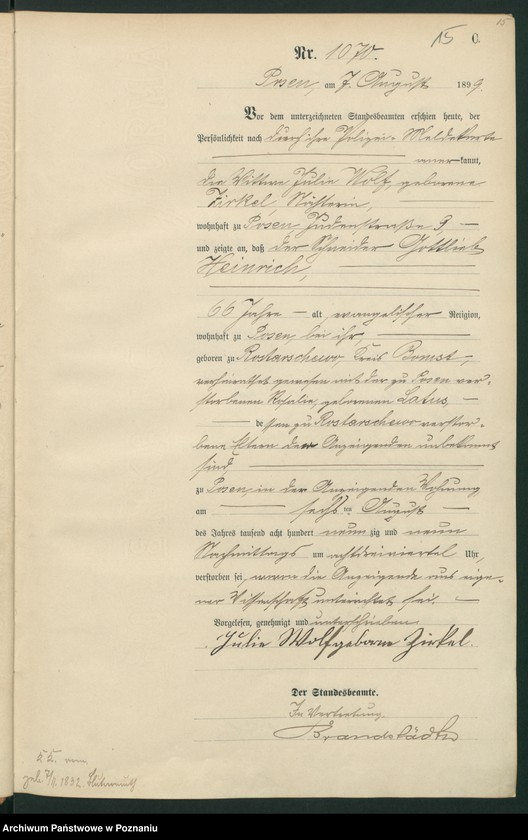 15
15 C.
Nr. 1070.
Posen, am 7. August 1899.
Vor dem unterzeichneten Standesbeamten erschien heute, der
Persönlichkeit nach durch ihre Polizei-Meldekarte
anerkannt,
die Wittwe Julie Wolf, geborene
Zirkel,
wohnhaft zu Posen, Judenstraße 9
und zeigte an, daß der Schneider Gottlieb
Heinrich,
66 Jahre alt, evangelischer Religion,
wohnhaft zu Posen, bei ihr,
geboren zu Rostarschewo, Kreis Bomst,
verheirathet gewesen mit der zu Posen ver-
storbenen Rosalie, geborenen Latus,
zu Rostarschewo verstor-
bene Eltern der Anzeigenden unbekannt
sind,
zu Posen, in der Anzeigenden Wohnung
am sechsten August
des Jahres tausend acht hundert neunzig und neun
Nachmittags um achtdreiviertel Uhr,
verstorben sei, wovon die Anzeigende aus eige-
ner Wissenschaft unterrichtet sei.
Vorgelesen, genehmigt und unterschrieben
Julie Wolf geborne Zirkel.
Der Standesbeamte.
In Vertretung.
Brandstädter
1832
Archiwum Państwowe w Poznaniu